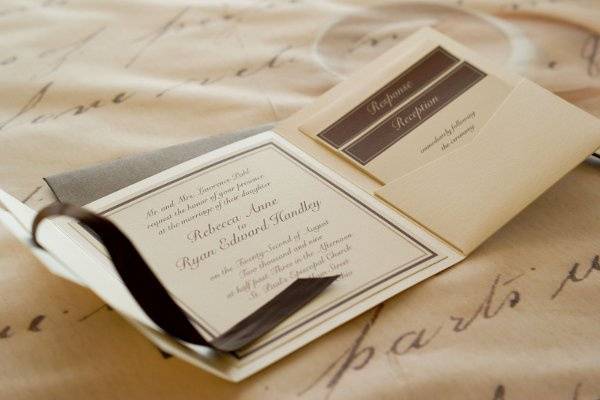 Mr. and Mrs. Lawrence Dahl
request the honor of your presence
at the marriage of their daughter
Rebecca Anne
to
Ryan Edward Handley
on the Twenty-Second of August
Two thousand and nine
at half past Three in the Afternoon
St. Paul's Episcopal Church
Street
Response
Reception
immediately following
the ceremony
parts